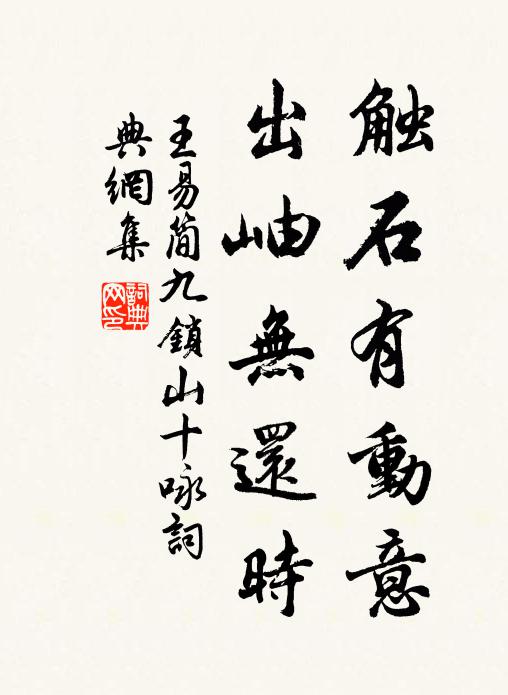 触石有動意
出岫無還時
王易简九鎖山十咏詞
典網集
詞典网印